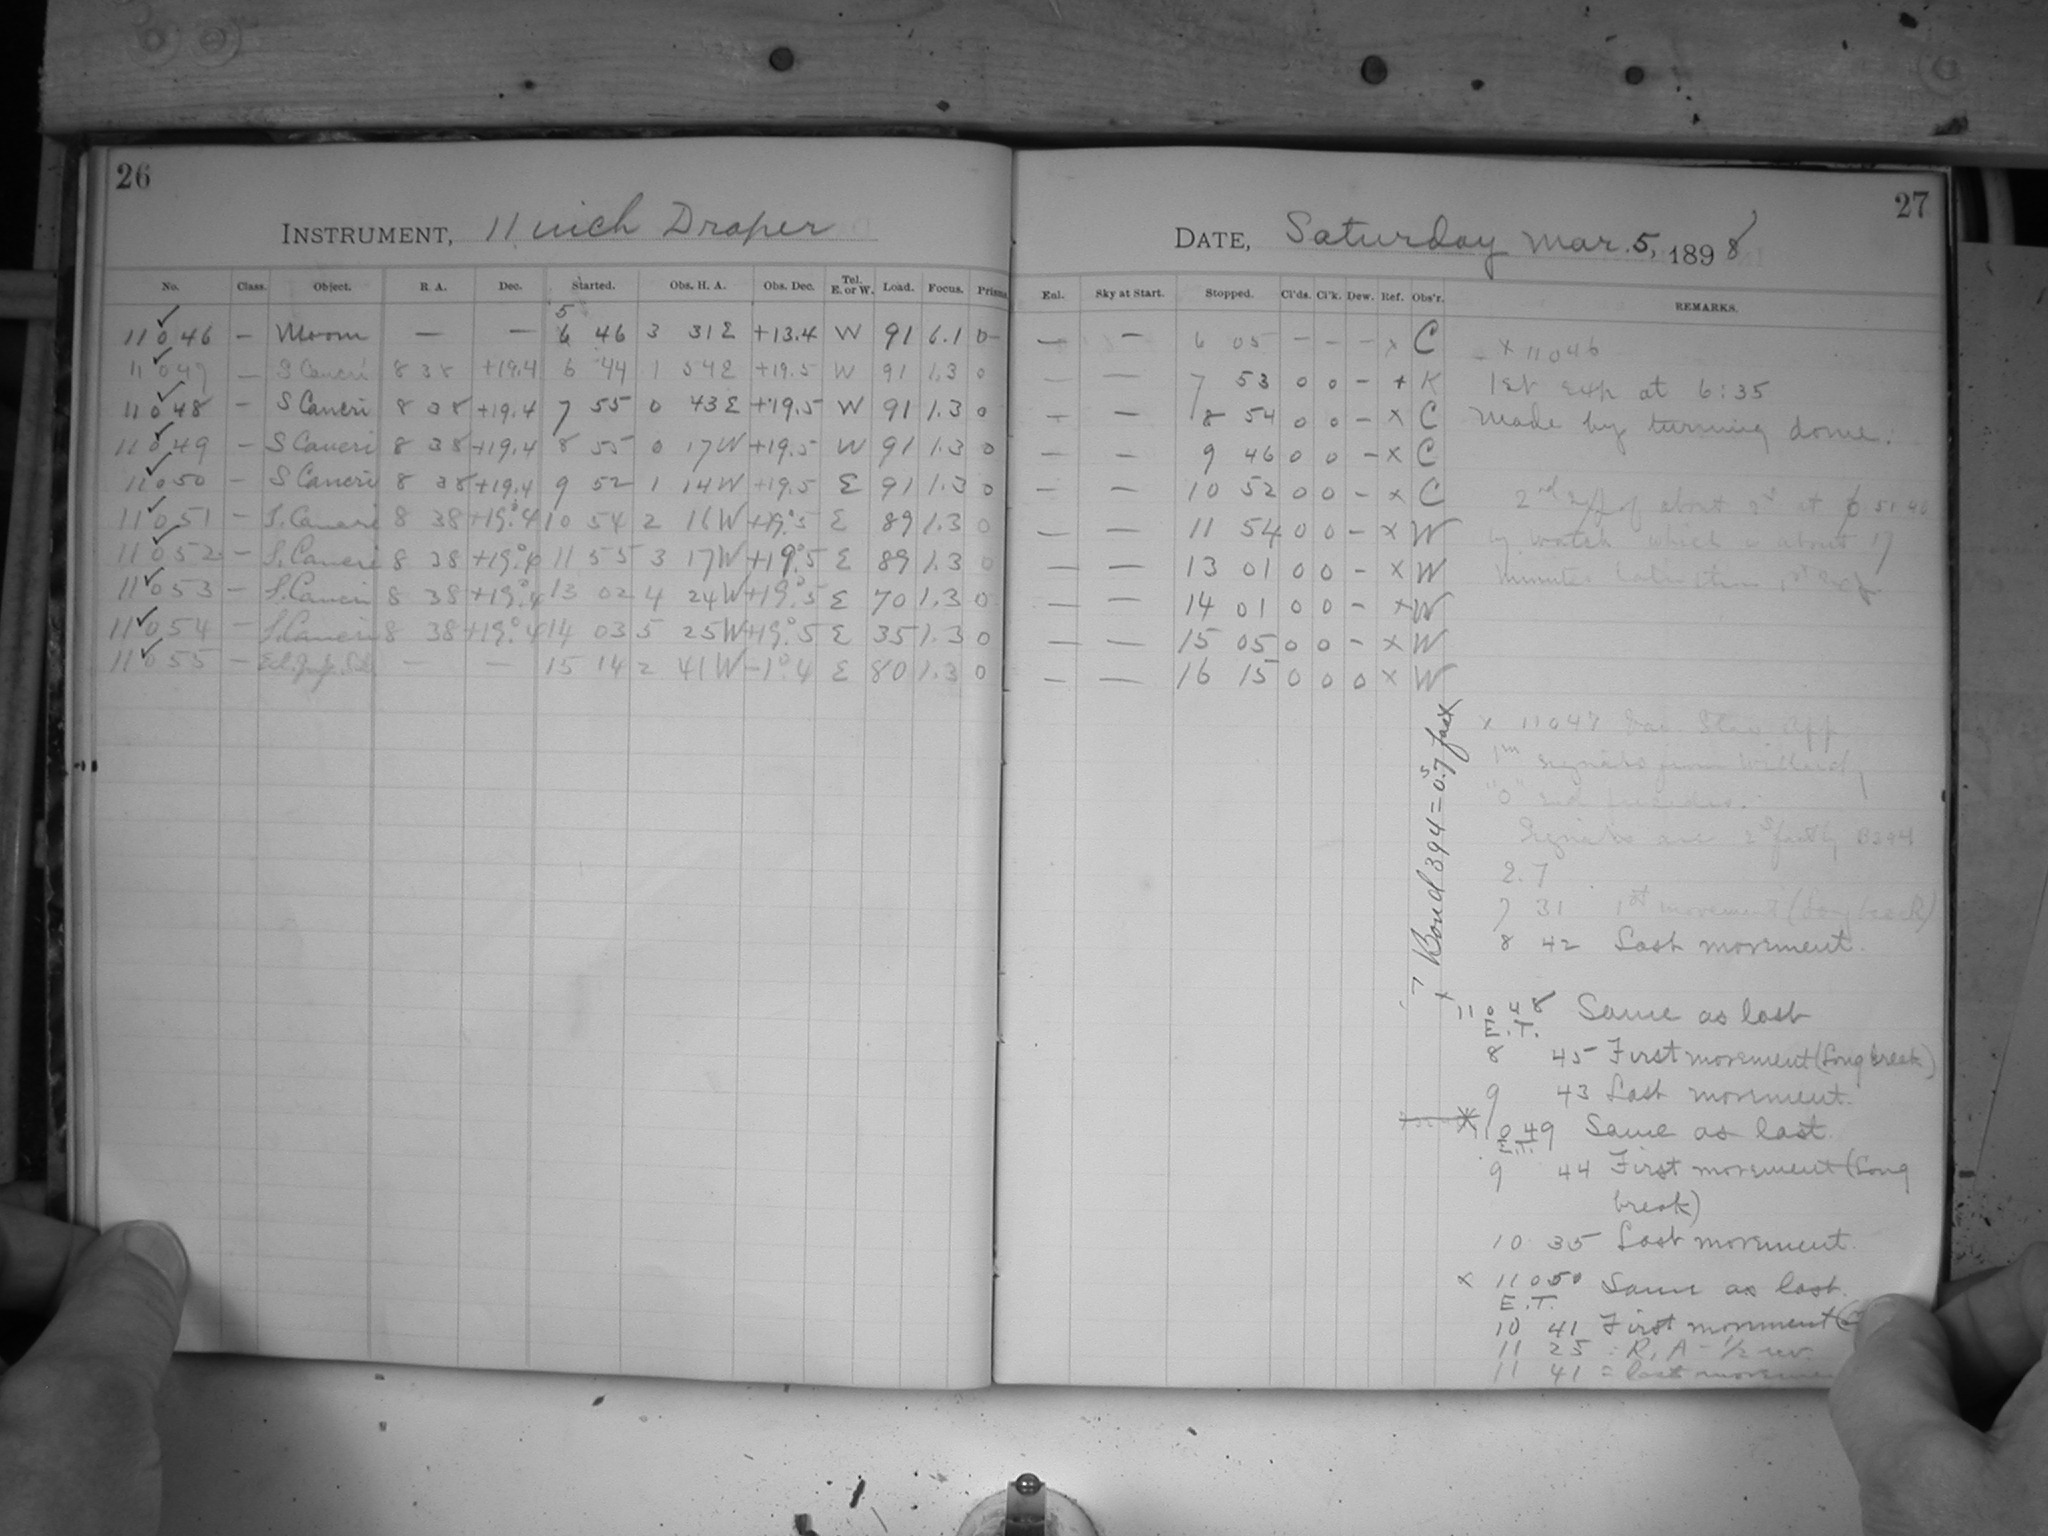 26
INSTRUMENT, 11 inch Draper
No. Class. Object. R. A. Dec. Started. Obs. H. A. Obs. Dec. Tel. E. or W. Load. Focus. Prisms.
5
11046 — Moon — — 6 46 3 31 E +13.4 W 91 6.1 0
11047 — S Cancri 8 38 +19.4 6 44 1 54 E +19.5 W 91 1.3 0
11048 — S Cancri 8 38 +19.4 7 55 0 43 E +19.5 W 91 1.3 0
11049 — S Cancri 8 38 +19.4 8 55 0 17 W +19.5 W 91 1.3 0
11050 — S Cancri 8 38 +19.4 9 52 1 14 W +19.5 E 91 1.3 0
11051 — S. Cancri 8 38 +19.°4 10 54 2 16 W +19.°5 E 89 1.3 0
11052 — S. Cancri 8 38 +19.° 11 55 3 17 W +19.°5 E 89 1.3 0
11053 — S. Cancri 8 38 +19.°4 13 02 4 24 W +19.°5 E 70 1.3 0
11054 — S. Cancri 8 38 +19.°4 14 03 5 25 W +19.°5 E 35 1.3 0
11055 — — — 15 14 2 41 W -1.°4 E 80 1.3 0
27
DATE, Saturday Mar. 5, 1898
Enl. Sky at Start. Stopped. Cl'ds. Cl'k. Dew. Ref. Obs'r. REMARKS.
— — 6 05 — — — x C
— — 7 53 0 0 — + K
— — 8 54 0 0 — x C
— — 9 46 0 0 — x C
— — 10 52 0 0 — x C
— — 11 54 0 0 — x W
— — 13 01 0 0 — x W
— — 14 01 0 0 — x W
— — 15 05 0 0 — x W
— — 16 15 0 0 0 x W
x 11046
1st exp at 6:35
Made by turning dome.
2nd of about at
by watch which is about 17
minutes later than 1st exp
x Bond 394 = 0.ˢ7 fast
x 11047
1m signals from Willard,
"0"
Signals are 2s fast by B394
2.7
7 31 1st movement (Long break)
8 42 Last movement.
11048 Same as last
E.T.
8 45 First movement (Long break)
9 43 Last movement.
11049 Same as last.
E.T.
9 44 First movement (Long
break)
10 35 Last movement.
x 11050 Same as last.
E.T.
10 41 First movement (
11 25 : R. A - 1/2 rev.
11 41 = last